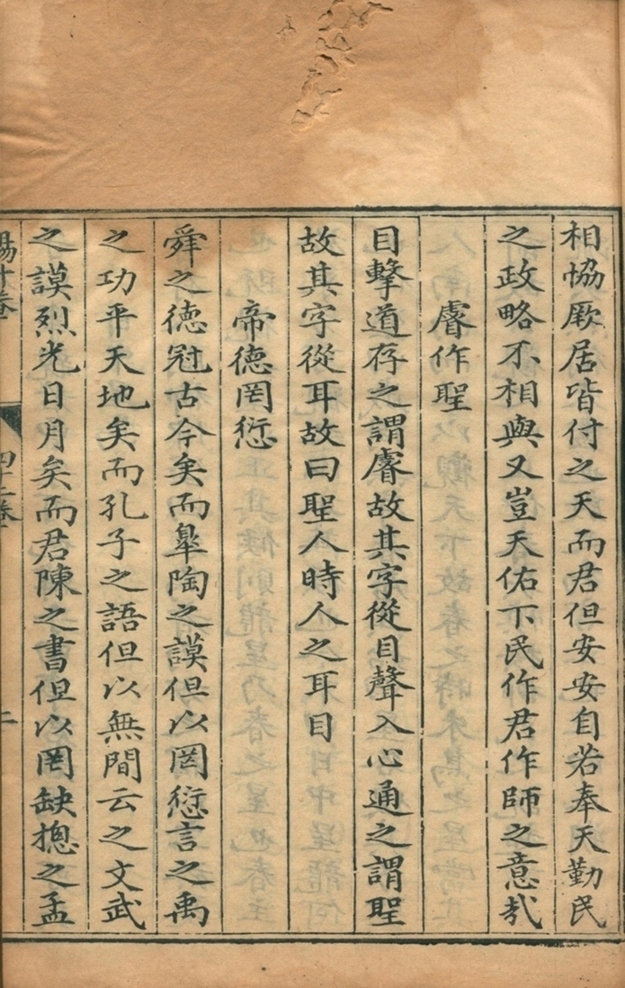 相協厥居皆付之天而君但安安自若奉天勤民
之政略不相與又豈天佑下民作君作師之意㢤
睿作聖
目擊道存之謂睿故其字從目聲入心通之謂聖
故其字從耳故曰聖人時人之耳目
帝德罔愆
舜之德冠古今矣而臯陶之謨但以罔愆言之禹
之功平天地矣而孔子之語但以無間云之文武
之謨烈光日月矣而君陳之書但以罔缺揔之孟